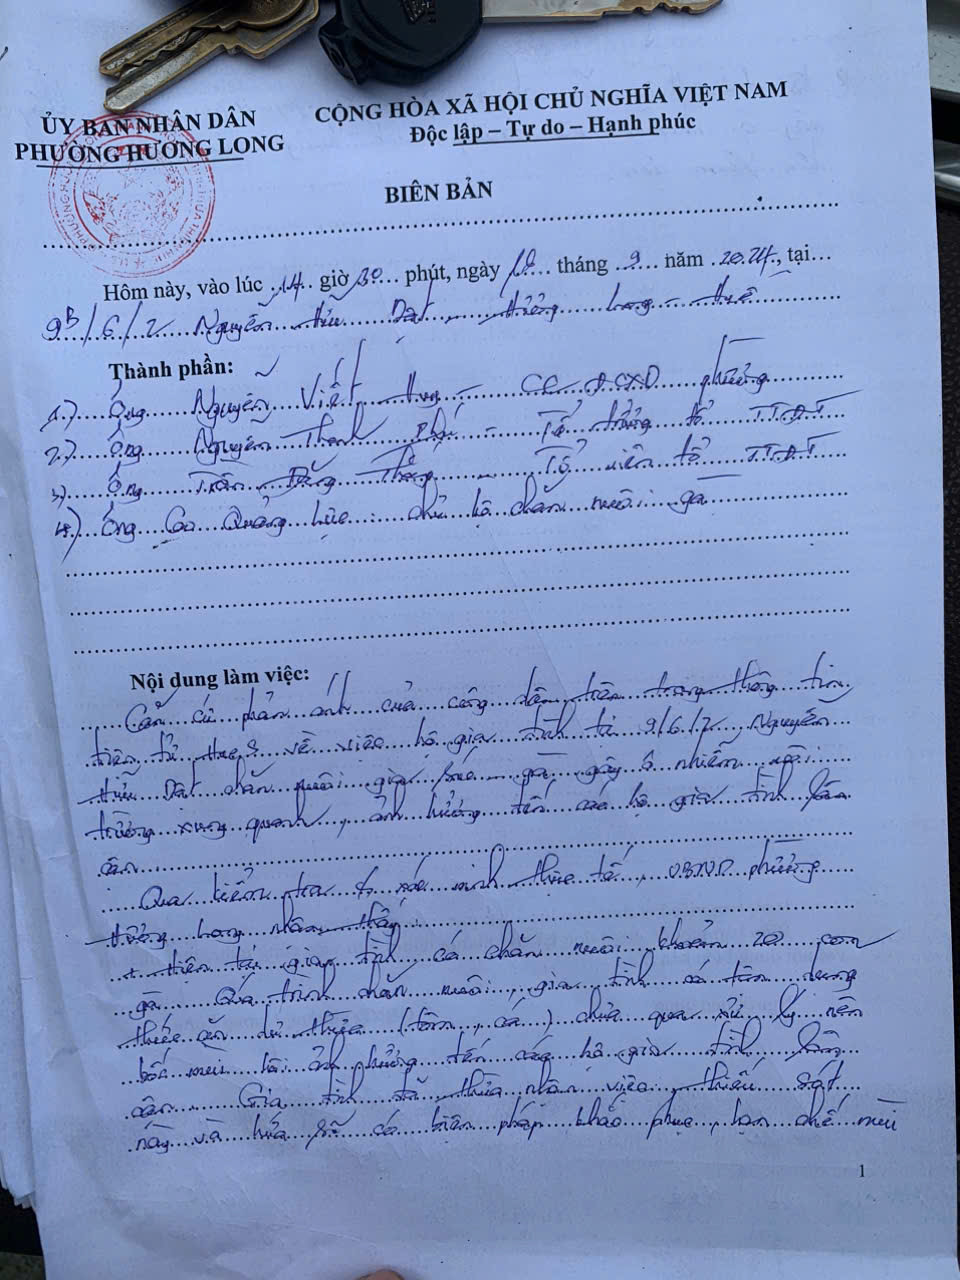 ỦY BAN NHÂN DÂN
PHƯỜNG HƯƠNG LONG
CỘNG HÒA XÃ HỘI CHỦ NGHĨA VIỆT NAM
Độc lập – Tự do – Hạnh phúc
BIÊN BẢN
Hôm này, vào lúc 14 giờ 30 phút, ngày tháng 9 năm 2024, tại
9B/6/2 Nguyễn Hữu Dật, Hương Long - Huế
Thành phần:
1.) Ông Nguyễn Viết phường
2.) Ông Nguyễn Thanh Phú - Tổ trưởng tổ TTĐT
3) Ông Trần Đăng Thắng - Tổ viên tổ TTĐT
4.) Ông Cao Quảng Lực: chủ hộ chăn nuôi gà
Nội dung làm việc:
Căn cứ phản ánh của công dân trên trang thông tin
điện tử Hue S về việc hộ gia đình tại 9/6/2 Nguyễn
Hữu Dật chăn nuôi gia súc gà gây ô nhiễm môi
trường xung quanh, ảnh hưởng đến các hộ gia đình lân
cận.
Qua kiểm tra & xác minh thực tế, UBND phường
Hương Long nhận thấy
+ Hiện tại gia đình có chăn nuôi khoản 20 con
gà. Quá trình chăn nuôi, gia đình có tận dụng
thức ăn dư thừa (tôm, cá) chưa qua xử lý nên
bốc mùi hôi ảnh hưởng đến các hộ gia đình lân
cận. Gia đình đã thừa nhận việc thiếu sót
này và hứa sẽ có biện pháp khắc phục, hạn chế mùi
1